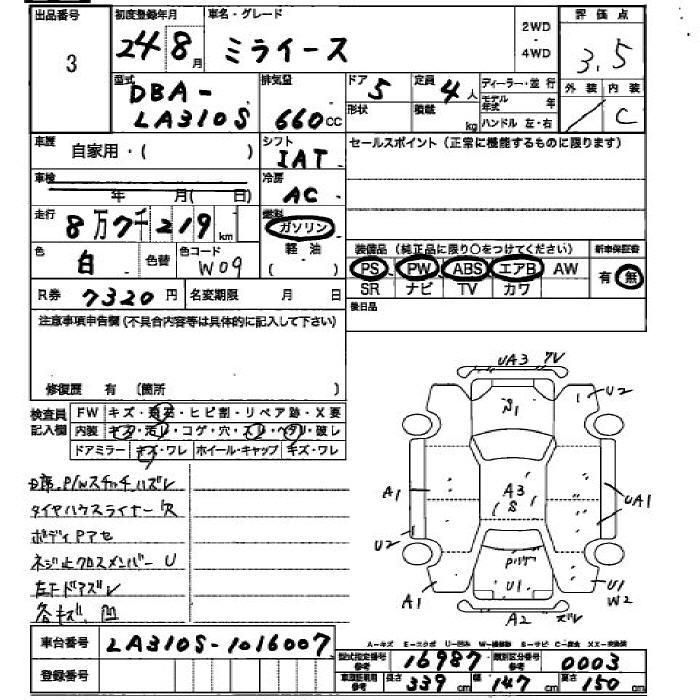 出品番号 初度登録年月 車名・グレード 2WD・4WD 評価点
3 24 8月 ミライース 3.5
型式 排気量 ドア 5 定員 4人 ディーラー・並行 外装 内装
DBA-LA310S 660cc 形状 積載 kg モデル年式 年 C
ハンドル 左・右
車歴 自家用・( ) シフト IAT セールスポイント（正常に機能するものに限ります）
車検 年 月( 日) 冷房 AC
走行 8万7千219km 燃料 ガソリン
軽油
( )
色 白 色替 色コード W09
装備品（純正品に限り○をつけてください） 新車保証書
PS PW ABS エアB AW 有・無
SR ナビ TV カワ
R券 7320円 名変期限 月 日 後日品
注意事項申告欄（不具合内容等は具体的に記入して下さい）
修復歴 有 (箇所 )
検査員記入欄 FW キズ・ ・ヒビ割・リペア跡・X要
内装 キズ・汚レ・コゲ・穴・スレ・ヘタリ・破レ
ドアミラー キズ・ワレ ホイール・キャップ キズ・ワレ
P/Wスイッチハズレ
タイヤハウスライナー欠
ボディPアセ
ネジ止クロスメンバー U
左下ドアズレ
各キズ、凹
UA3 ズレ
U2
S1
A1
A3
S
UA1
U2
U1
A1
U1
W2
A2 ズレ
車台番号 LA310S-1016007
A－キズ E－エクボ U－凹み W－補修跡 S－サビ C－腐食 XX－交換済
型式指定番号 参考 16987 類別区分番号 参考 0003
登録番号
車庫証明用 参考 長さ 339cm 幅 147cm 高さ 150cm